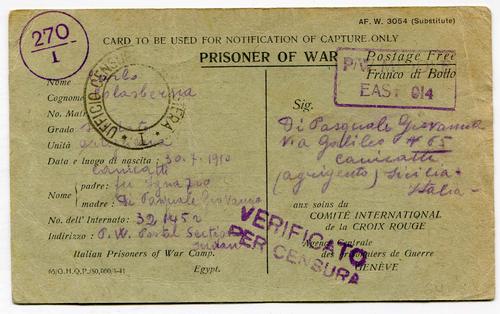 AF. W. 3054 (Substitute)
270
1
CARD TO BE USED FOR NOTIFICATION OF CAPTURE ONLY
PRISONER OF WAR
Postage Free
Franco di Bollo
P/W
EAST 614
UFFICIO CENS
IERA
1
Nome
Cognome
No. Matr
Grado
Unità
Data e luogo di nascita : 30.7.1910
Canicatti
Nome
padre: fu Ignazio
madre: Di Pasquale Giovanna
No. dell'Internato: 321452
Indirizzo : P. W. Postal Section
Italian Prisoners of War Camp.
65/G.H.Q.P./50,000/3-41
Egypt.
Sig.
Di Pasquale Giovanna
Via Galileo N 65
Canicatti
(Agrigento) Sicilia
Italia
aux soins du
COMITÉ INTERNATIONAL
de la CROIX ROUGE
Agence Centrale
des Prisonniers de Guerre
GENÈVE
VERIFICATO
PER CENSURA